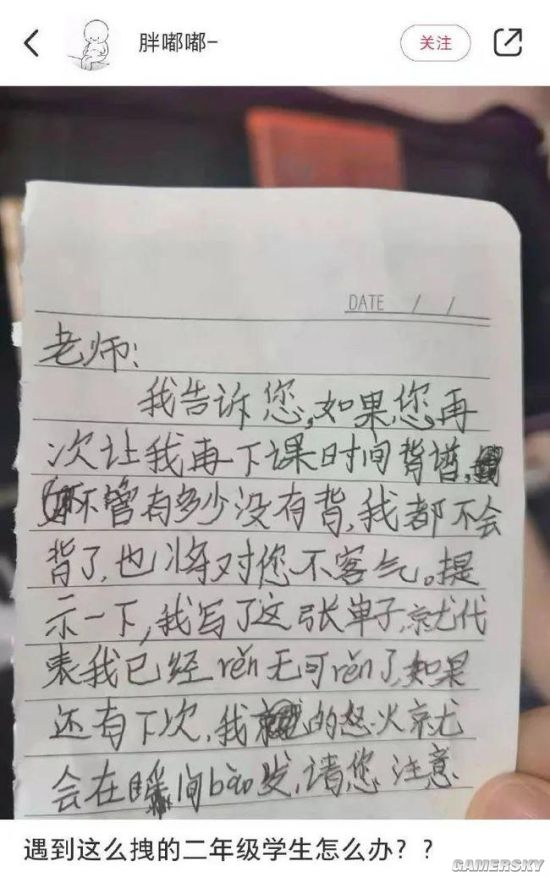 胖嘟嘟-
关注
DATE / /
老师:
我告诉您,如果您再
次让我再下课时间背谱,
不管有多少没有背,我都不会
背了,也将对您不客气。提
示一下,我写了这张单子,就代
表我已经rěn无可rěn了,如果
还有下次,我的怒火就
会在瞬间bào发,请您注意
遇到这么拽的二年级学生怎么办？？
GAMERSKY